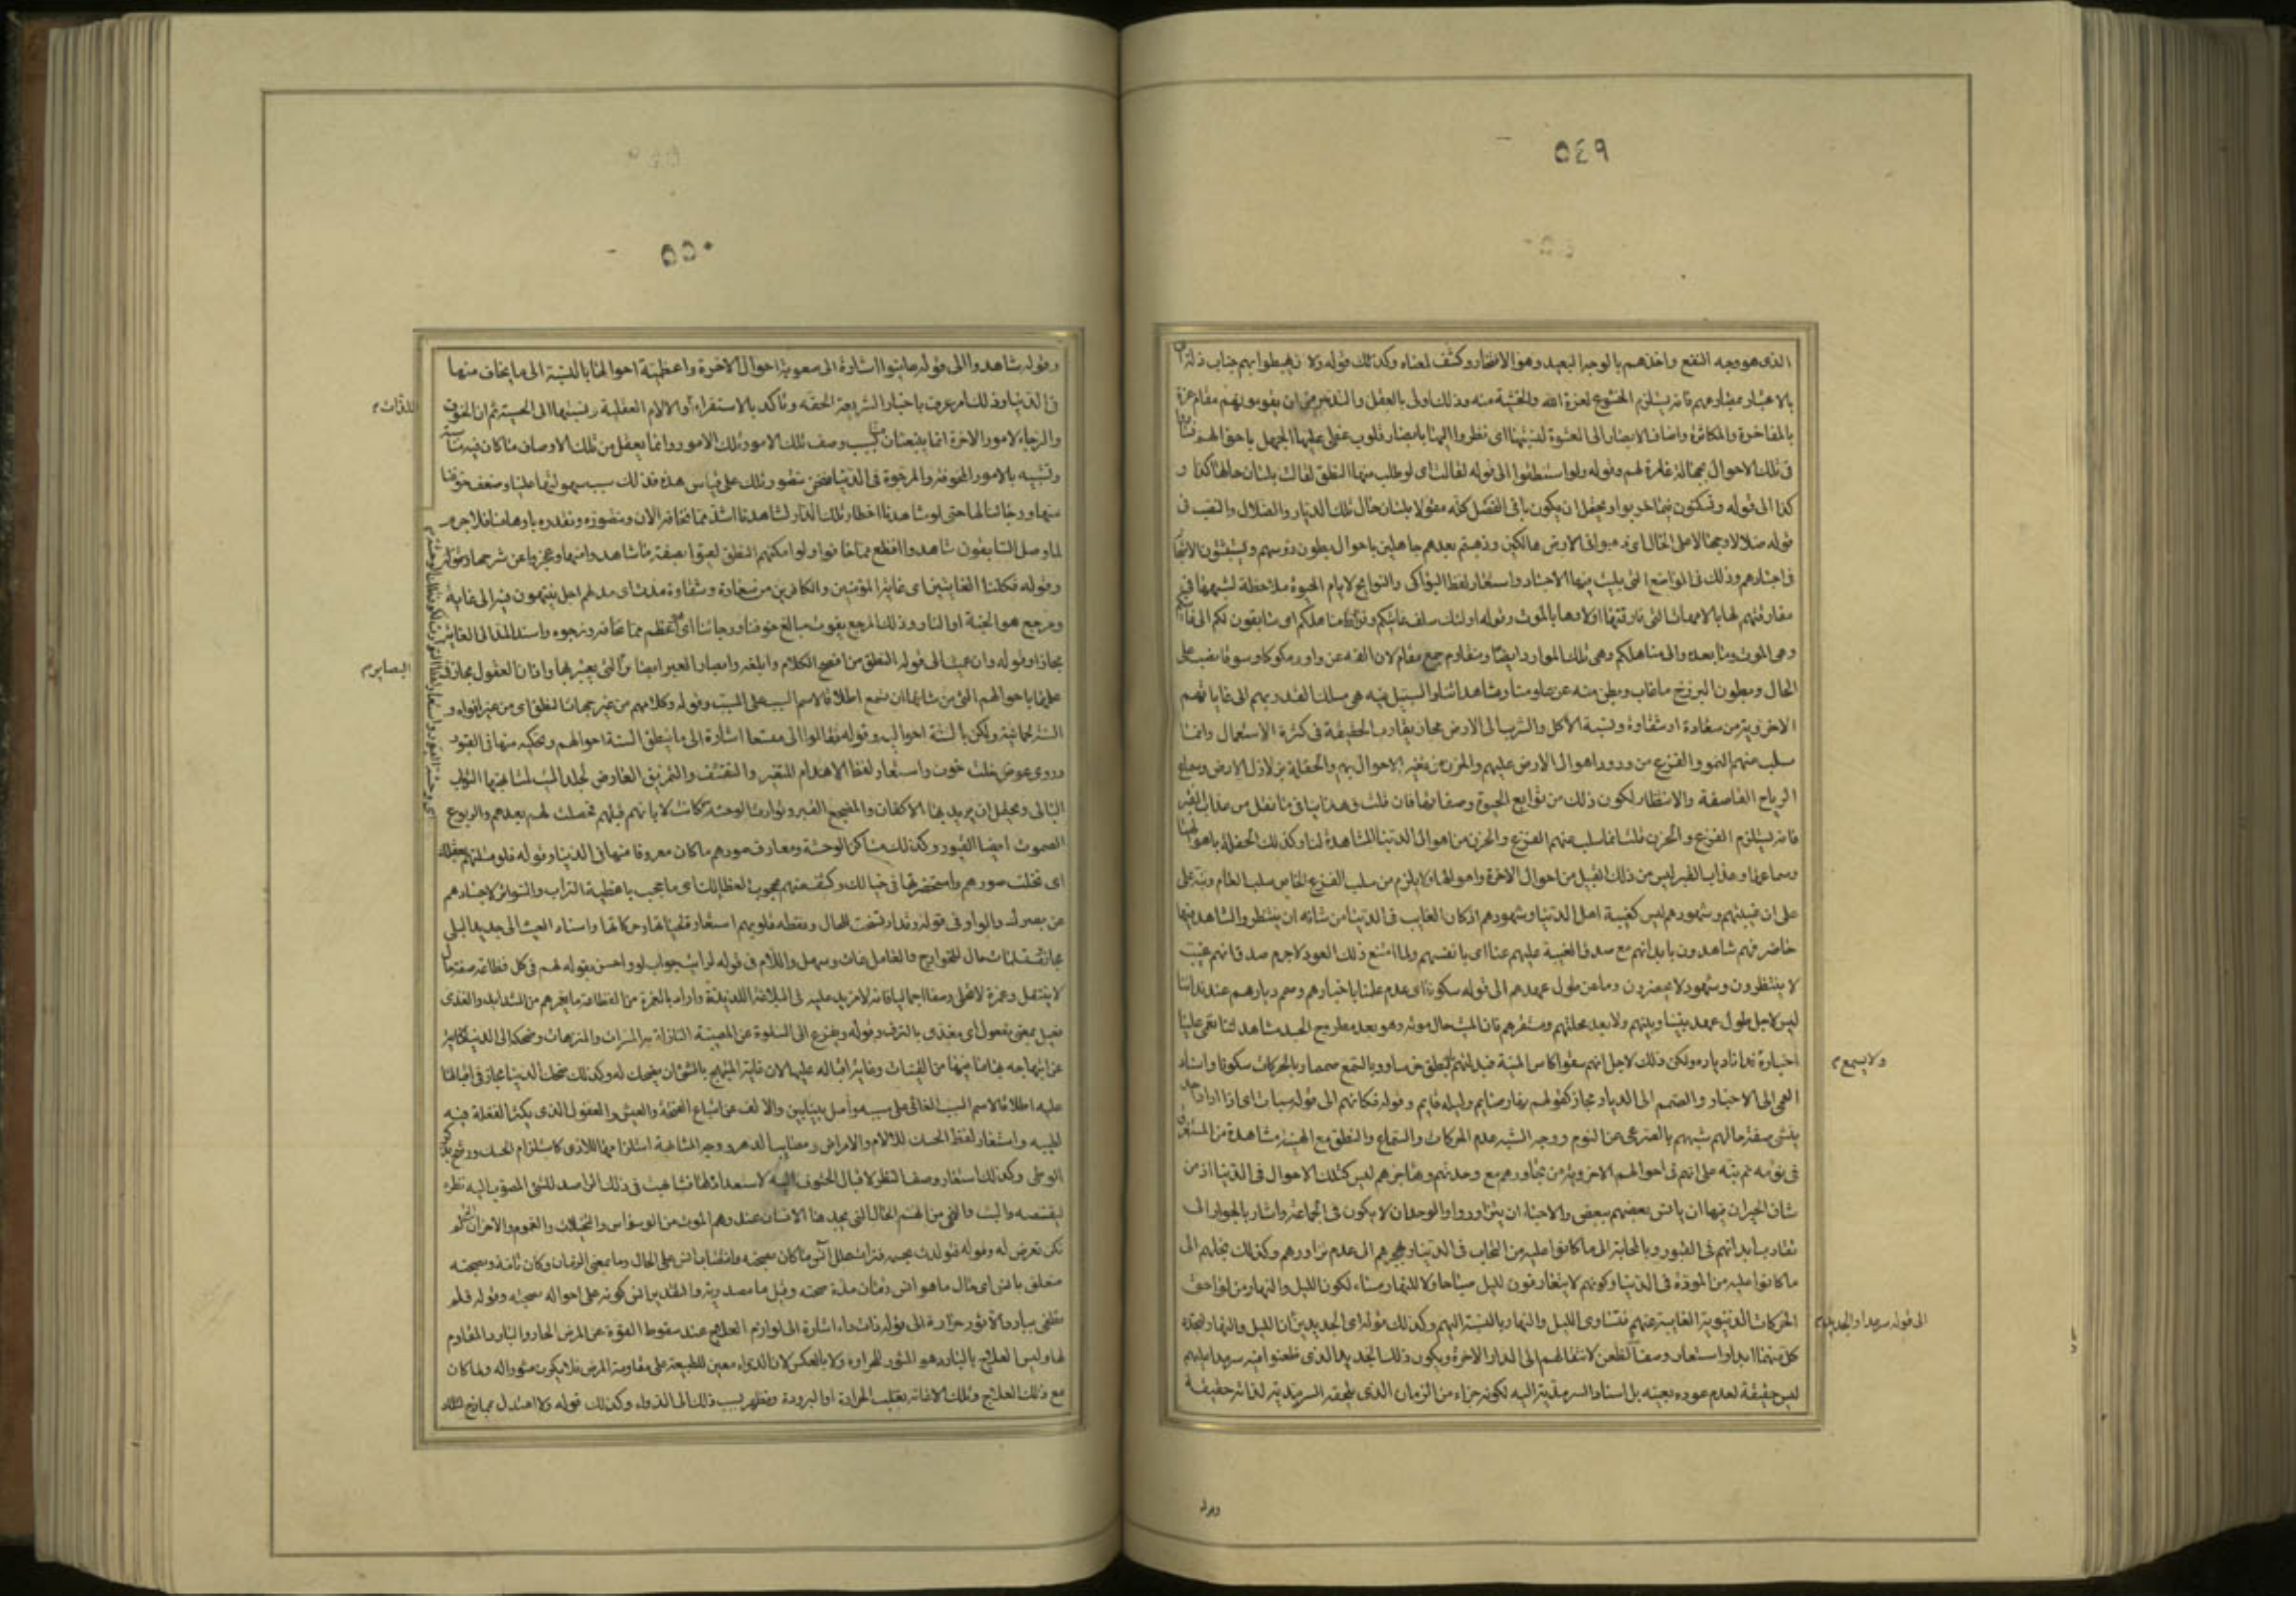 ٥٤٩
الذى هو وجه النفع واخذهم بالوجه البعيد وهو الافتخار وكشف لمعناه وكذلك قوله ولان يهبطوا بهم جناب ذلة
بالاعتبار بمصارعهم فانه يستلزم الخشوع لعزة الله والخشية منه وذلك اولى بالعقل والتدبير من ان يقوموا بهم مقام عزة
بالمفاخرة والمكاثرة واضاف الابصار الى العشوة لنسبتها اى نظروا اليهم بابصار قلوب غطى عليها الجهل باحوالهم
فى تلك الاحوال بجهالة غامرة لهم وقوله ولو استنطقوا الى قوله لقالت اى لو طلب منها النطق لقالت بلسان حالها كذا و
كذا الى قوله وتسكنون فيما خربوا ويحتمل ان يكون باقى الفصل كله مقولا بلسان حال تلك الديار والضلال والنصب فى
قوله ضلالا وجهالا على الحال اى ذهبوا فى الارض هالكين وذهبتم بعدهم جاهلين باحوالهم تطؤون رؤسهم وتستثبتون
فى اجسادهم وذلك فى المواضع التى بليت فيها الاجساد واستعار لفظ البواكى والنوايح لايام الحيوة ملاحظة لشبهها فى
مفارقتهم لها بالامهات التى فارقتها اولادها بالموت وقوله اولئك سلف غايتكم وفراط مناهلكم اى سابقون لكم الى
وهى الموت وما بعده والى مناهلكم وهى تلك الموارد ايضا ومقاوم جمع مقام لان الفه عن واو وملوكا وسوقا نصب على
الحال وبطون البرزخ ما غاب وبطن منه عن علومنا ومشاهداتنا والسبيل فيه هى مسلك القدر بهم الى غاياتهم
الاخروية من سعادة او شقاوة ونسبة الاكل والشرب الى الارض مجاز يقارب الحقيقة فى كثرة الاستعمال وانما
سلب عنهم النمو والفزع من ورود اهوال الارض عليهم والحزن من تغير الاحوال بهم والحفلة بزلازل الارض وسماع
الرياح القاصفة والانتظار لكون ذلك من توابع الحيوة وصفاتها فان قلت فهذا ينافى ما نقل من عذاب القبر
فانه يستلزم الفزع والحزن قلت انما سلب عنهم الفزع والحزن من اهوال الدنيا المشاهدة لنا وكذلك الحفلة باهوالها
وسماعها وعذاب القبر ليس من ذلك القبيل من احوال الاخرة واهوالها ولا يلزم من سلب الفزع الخاص سلب العام ونبه على
على ان غيبتهم وشهودهم ليس كغيبة اهل الدنيا وشهودهم اذ كان الغايب فى الدنيا من شانه ان ينتظر والشاهد فيها
حاضر فهم شاهدون بابدانهم مع صدق الغيبة عليهم عنا اى بانفسهم ولما امتنع ذلك العود لا جرم صدق انهم غيب
لا ينتظرون وشهود لا يحضرون وما عن طول عهدهم الى قوله سكونا اى عدم علمنا باخبارهم وصمم ديارهم عند ندائنا
ليس لاجل طول عهد بيننا وبينهم ولا بعد محلتهم ومستقرهم فان الميت حال موته وهو بعد مطروح الجسد مشاهد لنا تعمى علينا
اخباره نداء دياره ولكن ذلك لاجل انهم سقوا كاس المنية فبدلتهم بالنطق خرسا وبالسمع صمما وبالحركات سكونا واسناد
ولا يسمع م
العمى الى الاخبار والصمم الى الديار مجاز كقولهم نهاره صايم وليله قايم وقوله فكانهم الى قوله سبات اى اذا اراد
ينشى صفة حالهم شبههم بالصرعى عن النوم ووجه الشبه عدم الحركات والسماع والنطق مع الهيئة المشاهدة من المستغرق
فى نومه ثم نبه على انهم فى احوالهم الاخروية من تجاورهم مع وحدتهم وتهاجرهم ليس كتلك الاحوال فى الدنيا اذ من
شان الجيران فيها ان يانس بعضهم ببعض والاحباء ان يتزاوروا والوحدان لا يكون فى الجماعة واشار بالجوار الى
تقارب ابدانهم فى القبور وبالمحابة الى ما كانوا عليه من التحاب فى الدنيا وبهجرهم الى عدم تزاورهم وكذلك بخلتهم الى
ما كانوا عليه من المودة فى الدنيا وكونهم لا يتعارفون لليل صباحا ولا للنهار مساء لكون الليل والنهار من لواحق
الحركات الدنيوية الغايبة عنهم فتساوى الليل والنهار بالنسبة اليهم وكذلك قوله اى الجديدين ان الليل والنهار لتجدد
الى قوله سرمدا والجديدان م
كل منهما ابدا واستعار وصف الظعن لانتقالهم الى الدار الاخرة ويكون ذلك الجديد الذى ظعنوا فيه سرمدا عليهم
ليس حقيقة لعدم عوده بعينه بل اسناد السرمدية اليه لكونه جزاء من الزمان الذى يلحقه السرمدية لذاته حقيقة
وقوله
٥٥٠
وقوله شاهدوا الى قوله عاينوا اشارة الى صعوبة احوال الاخرة واعظمية احوالها بالنسبة الى ما يخاف منها
فى الدنيا وذلك امر عرف باخبار الشريعة الحقة وتاكد بالاستقراء او الالام العقلية ونسبتها الى الحسية ثم ان الخوف
للذات م
والرجاء لامور الاخرة انما ينبعثان بسبب وصف تلك الامور وتلك الامور وانما يعقل من تلك الاوصاف ما كان فيه مناسبة
وتشبيه بالامور المخوفة والمرجوة فى الدنيا فنحن نتصور تلك على قياس هذه فذلك سبب سهولتها علينا وضعف خوفنا
منها ورجائنا لها حتى لو شاهدنا اخطار تلك الدار لشاهدنا اشد مما نخافه الان ونتصوره ونقدره باوهامنا فلا جرم
لما وصل السابقون شاهدوا افظع مما خافوا ولو امكنهم النطق لعيوا بصفة ما شاهدوا منها وعجزوا عن شرحها وقوله
وقوله فكلتا الغايتين اى غاية المؤمنين والكافرين من سعادة وشقاوة مدت اى مد لهم اجل ينتهون فيه الى غاية
ومرجع هو الجنة او النار وذلك المرجع يفوت مبالغ خوفنا ورجائنا اى اعظم مما نخافه ونرجوه واسند المد الى الغاية
مجازا وقوله وان عميت الى قوله النطق من افصح الكلام وابلغه وابصار العبر ابصار التى يعتبر بها واذان العقول مجاز فى
البصاير م
علمها باحوالهم التى من شانها ان تسمع اطلاقا لاسم السبب على المسبب وقوله وكلامهم من غير جهات النطق اى من غير افواه و
السنة لحمانية ولكن بالسنة احوالهم وقوله فقالوا الى متسعا اشارة الى ما ينطق السنة احوالهم وتحكيه منها فى القبور
وروى عوض خلت خوت واستعار لفظ الاهدام للتغير والتقشف والتمزيق العارض لجلد الميت لمشابهتها الثوب
البالى ويحتمل ان يريد بها الاكفان والمضجع القبر وتوارث الوحشة كانت لابائهم قبلهم فحصلت لهم بعدهم والربوع
الصموت ايضا القبور وكذلك مساكن الوحشة ومعارف صورهم ما كان معروفا منها فى الدنيا وقوله فلو مثلتهم بعقلك
اى تخيلت صورهم واستحضرتها فى خيالك وكشف عنهم محجوب لغطاء لك اى ما حجب باغطية التراب والسواتر لاجسادهم
عن بصرك والواو فى قوله وقد ارتسخت للحال ويقظة قلوبهم استعارة لحياتها وحركاتها واسناد العيث الى جديد البلى
مجاز ومستسلمات حال للجوارح والعامل عاث وسهل واللام فى قوله لرايت جواب لو واحسن بقوله لهم فى كل فظاعة صفة حال
لا ينتقل وغمرة لا تنجلى وصفا اجماليا فانه لا مزيد عليه فى البلاغة اللذيذة واراد بالغمرة من الفظاعة ما يغمرهم من الشدايد والغذى
فعيل بمعنى مفعول اى مغذى بالترف وقوله ويفزع الى السلوة عن المصيبة النازلة به الى المسرات والمتنزهات وضحكه الى الدنيا كناية
عن ابتهاجه بها وما فيها من القينات وغاية اقباله عليها لان غاية المبتهج بالشى ان يضحك له وكذلك ضحك الدنيا مجاز فى اقبالها
عليه اطلاقا لاسم السبب الغائى على مسببه واصل بينا بين والالف عن اشباع الفتحة والعيش والعقول الذى يكثر الغفلة فيه
لطيبه واستعار لفظ الحسك للالام والامراض ومصايب الدهر ووجه المشابهة استلزامها للاذى كاستلزام الحسك ورشح بذكر
الوطى وكذلك استعار وصف النظر لاقبال الحتوف اليه لاستعدادها لها فشابهت فى ذلك الراصد للشى المصوب اليه نظره
ليقتنصه والبث والنجى من الهم الحال التى يجدها الانسان عند وهم الموت من الوسواس والتخيلات والغموم والاحزان
تكن تعرض له وقوله فتولدت بحسبه فترات علل انس ما كان بصحته وانتصاب انس على الحال وما بمعنى الزمان وكان تامة وبصحته
متعلق بانس اى حال ما هو انس زمان مدة صحته وقيل ما مصدرية والتقدير انس كونه على احواله بصحته وقوله فلم
يطفى ببارد الا ثور حرارة الى قوله ذات داء اشارة الى لوازم العلاج عند سقوط القوة عن المرض الحار والبارد المقاوم
لها وليس العلاج بالبارد هو المثور للحرارة ولا بالعكس لان الدواء معين للطبيعة على مقاومة المرض فلا يكون مثورا له ولما كان
مع ذلك العلاج وتلك الاعانة يغلب الحرارة او البرودة ويظهر نسب ذلك الى الدواء وكذلك قوله ولا اعتدل بممازج لتلك